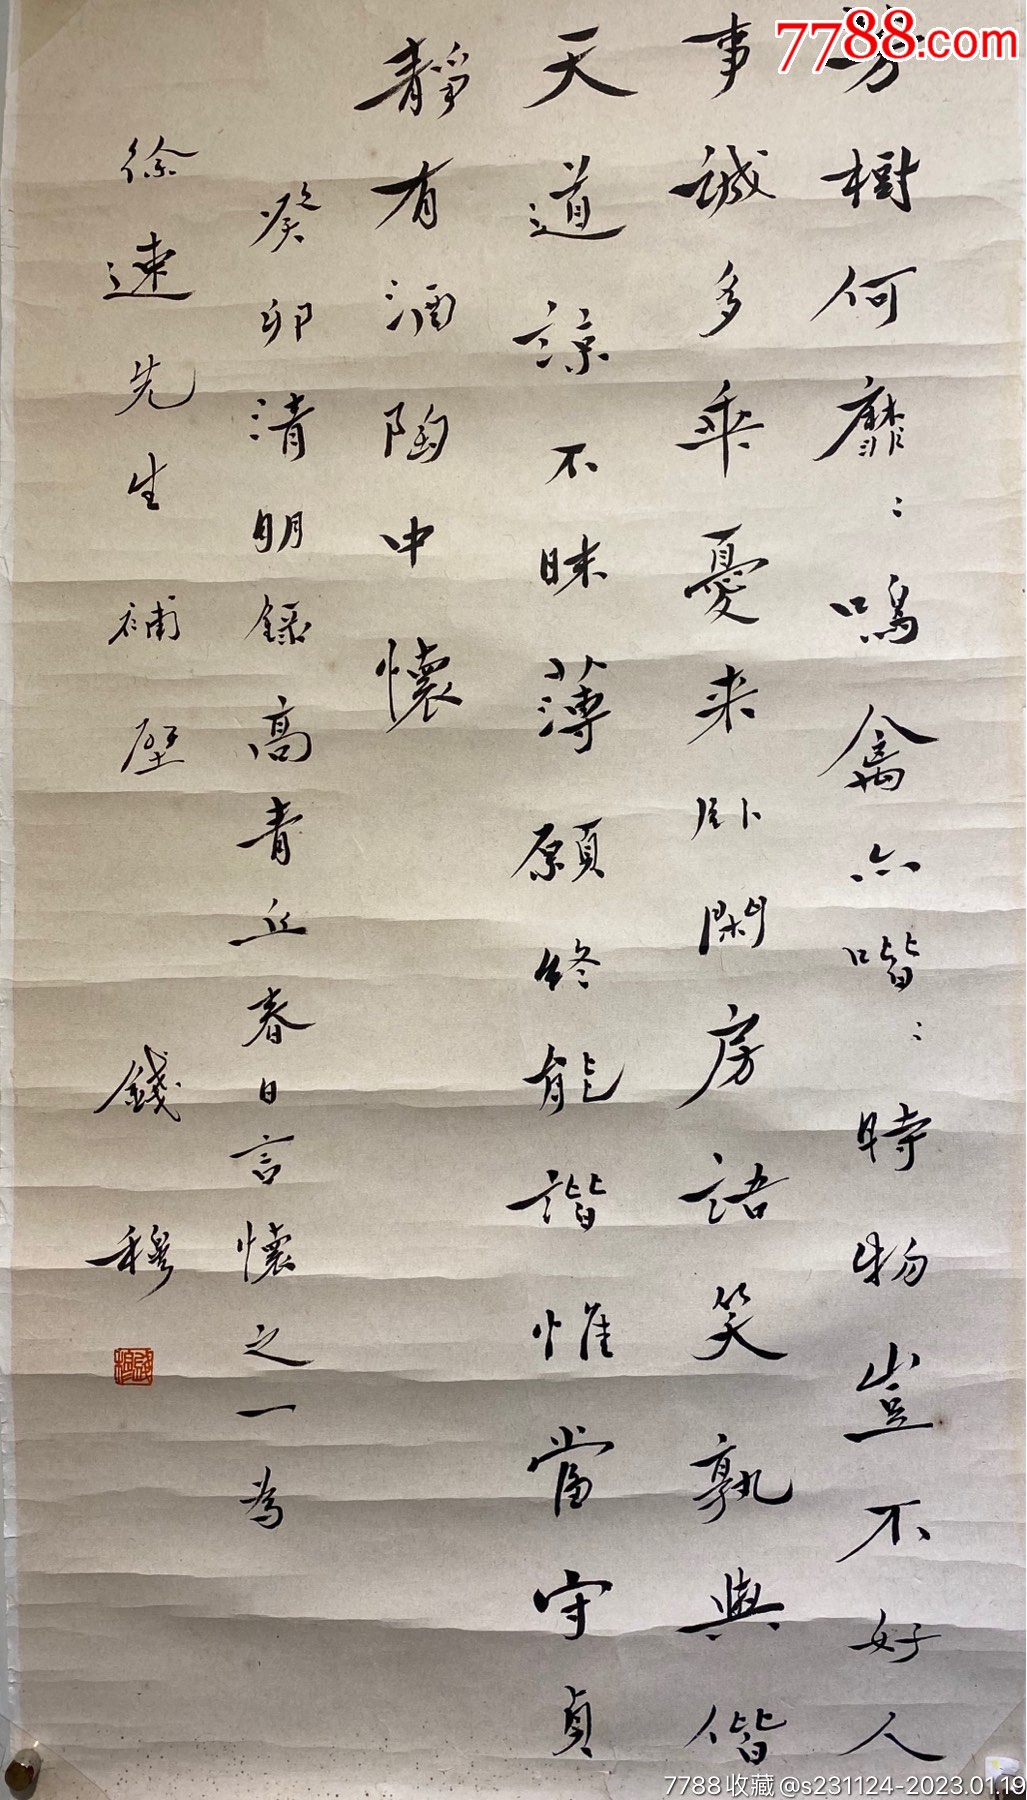 7788.com
芳樹何靡〻鳴禽亦喈〻時物豈不好人
事誠多乖憂来臥閑房語笑孰與偕
天道諒不昧薄願終能諧惟當守貞
靜有酒陶中懷
癸卯清明錄高青丘春日言懷之一為
徐速先生補壁 錢穆
錢穆
7788收藏@s231124-2023.01.19